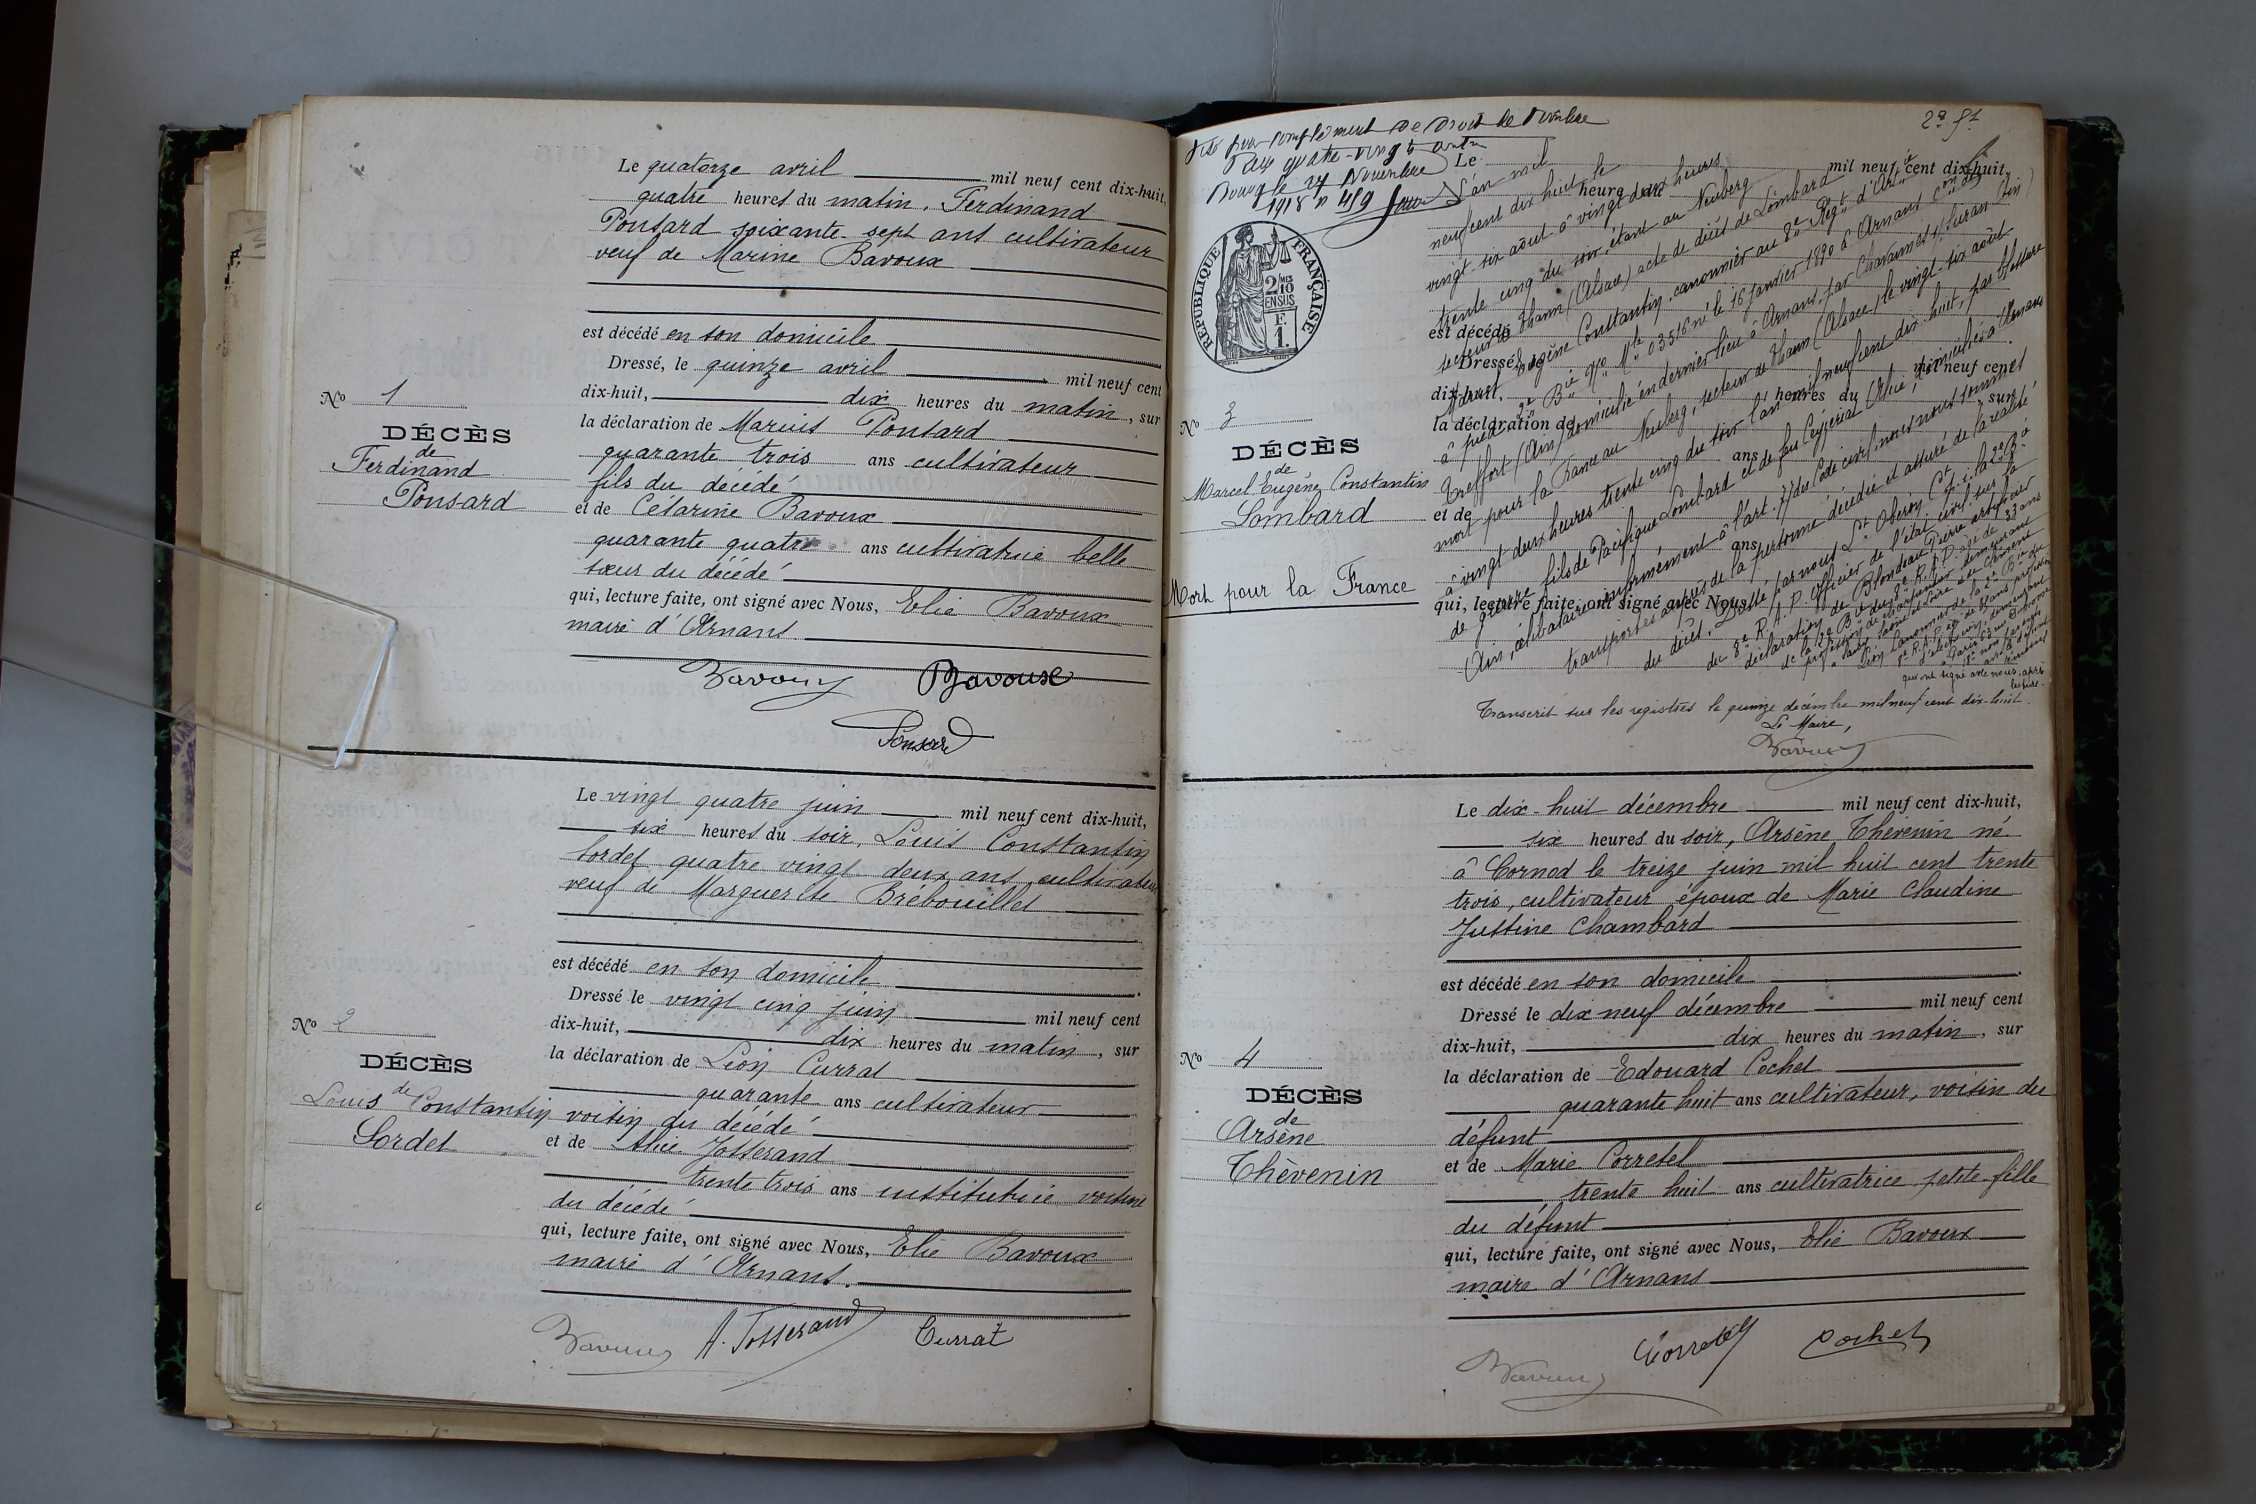 Le quatorze avril mil neuf cent dix-huit,
quatre heures du matin, Ferdinand
Ponsard soixante-sept ans cultivateur
veuf de Marine Bavoux
est décédé en son domicile
Dressé, le quinze avril mil neuf cent
dix-huit, dix heures du matin, sur
la déclaration de Marius Ponsard
quarante trois ans cultivateur
fils du décédé
et de Césarine Bavoux
quarante quatre ans cultivatrice belle
sœur du décédé
qui, lecture faite, ont signé avec Nous, Elie Bavoux
maire d'Arnans
Bavoux Bavoux
Ponsard
No 1
DÉCÈS
de
Ferdinand
Ponsard
Le vingt quatre juin mil neuf cent dix-huit,
six heures du soir, Louis Constantin
Sordet quatre vingt deux ans cultivateur
veuf de Marguerite Brébouillet
est décédé en son domicile
Dressé le vingt cinq juin mil neuf cent
dix-huit, dix heures du matin, sur
la déclaration de Léon Currat
quarante ans cultivateur
voisin du décédé
et de Alice Josserand
trente trois ans institutrice voisine
du décédé
qui, lecture faite, ont signé avec Nous, Elie Bavoux
maire d'Arnans.
Bavoux A. Josserand Currat
No 2
DÉCÈS
de
Louis Constantin
Sordet
Visé pour complément de droit de timbre
Bourg le 27 Novembre
1918 n° 419
RÉPUBLIQUE FRANÇAISE
2/10
EN SUS
F.
1.
No 3
DÉCÈS
de
Marcel Eugène Constantin
Lombard
Mort pour la France
Le mil neuf cent dix-huit,
heure du
est décédé
Dressé, le mil neuf cent
dix-huit, heures du sur
la déclaration de
ans
et de
ans
qui, lecture faite, ont signé avec Nous,
L'an mil
neuf cent dix huit le
vingt-six août à vingt deux heures
trente cinq du soir, étant au Neuberg
secteur de Thann (Alsace) acte de décès de Lombard
Marcel Eugène Constantin, canonnier au 8e Régt d'Artie
à pied 2e Bie Mle 03516 né le 16 janvier 1890 à Arnans Con de
Treffort (Ain) domicilié en dernier lieu à Arnans, par Chavannes s/ Suran (Ain)
mort pour la France au Neuberg, secteur de Thann (Alsace) le vingt-six août
à vingt deux heures trente cinq du soir l'an mil neuf cent dix huit, par blessure
de guerre fils de Pacifique Lombard et de feu Ceyzeriat Alice, domiciliés à Arnans
(Ain), célibataire conformément à l'art. 77 du Code civil nous nous sommes
transportés auprès de la personne décédée et assuré de la réalité
du décès. Dressé par nous Lt Oberon Ct p. i. la 2e Bie
du 8e R. A. P. officier de l'état civil sur la
déclaration de Blondeau Pierre artificier
qui ont signé avec nous, après
lecture.
Transcrit sur les registres le quinze décembre mil neuf cent dix-huit.
Le Maire,
Bavoux
Le dix-huit décembre mil neuf cent dix-huit,
six heures du soir, Arsène Thévenin né
à Cornod le treize juin mil huit cent trente
trois, cultivateur époux de Marie Claudine
Justine Chambard
est décédé en son domicile
Dressé le dix neuf décembre mil neuf cent
dix-huit, dix heures du matin, sur
la déclaration de Edouard Cochet
quarante huit ans cultivateur, voisin du
défunt
et de Marie Corretel
trente huit ans cultivatrice petite-fille
du défunt
qui, lecture faite, ont signé avec Nous, Elie Bavoux
maire d'Arnans
Bavoux Corretel Cochet
No 4
DÉCÈS
de
Arsène
Thévenin